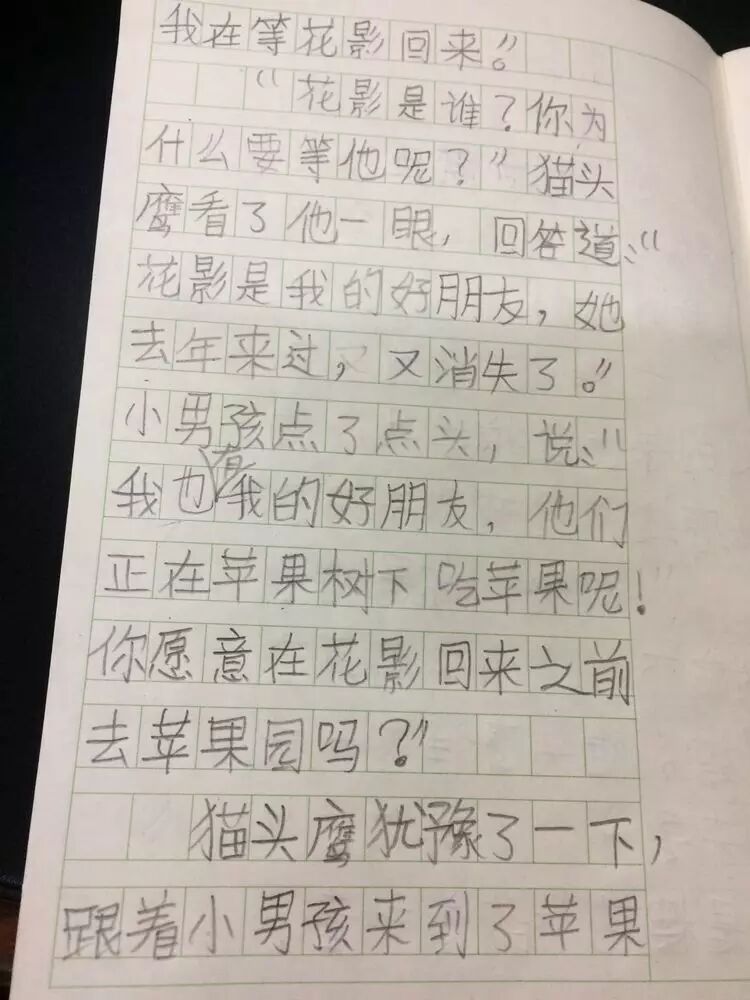 我在等花影回来。”
“花影是谁？你为
什么要等他呢？”猫头
鹰看了他一眼，回答道：“
花影是我的好朋友，她
去年来过，又消失了。”
小男孩点了点头，说：“
我也有我的好朋友，他们
正在苹果树下吃苹果呢！
你愿意在花影回来之前
去苹果园吗？”
猫头鹰犹豫了一下，
跟着小男孩来到了苹果